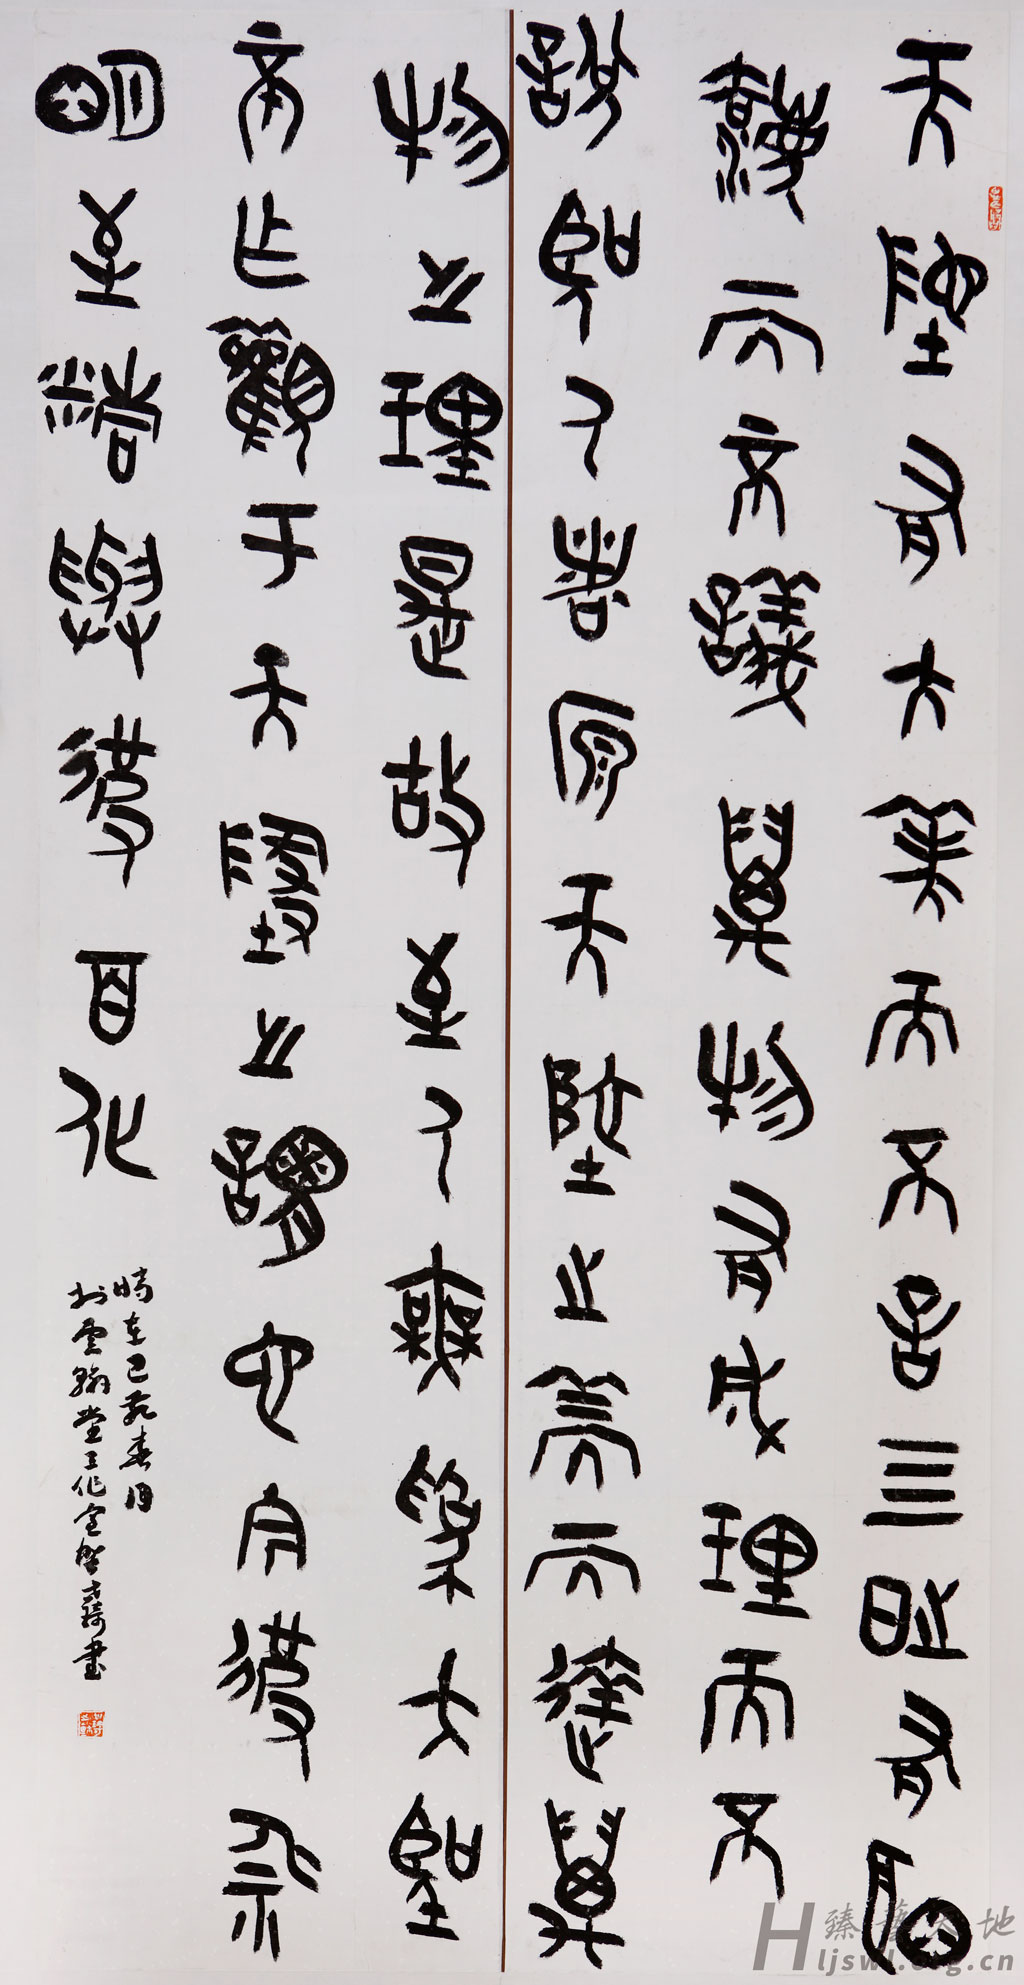 天地有大美而不言四時有明
法而不議萬物有成理而不
說聖人者原天地之美而達萬
物之理是故至人無為大聖
不作觀于天地之謂也今彼神
明至精與彼百化
時在己亥春月
於雲翰堂工作室書
臻藝天地
Hljswl.org.cn